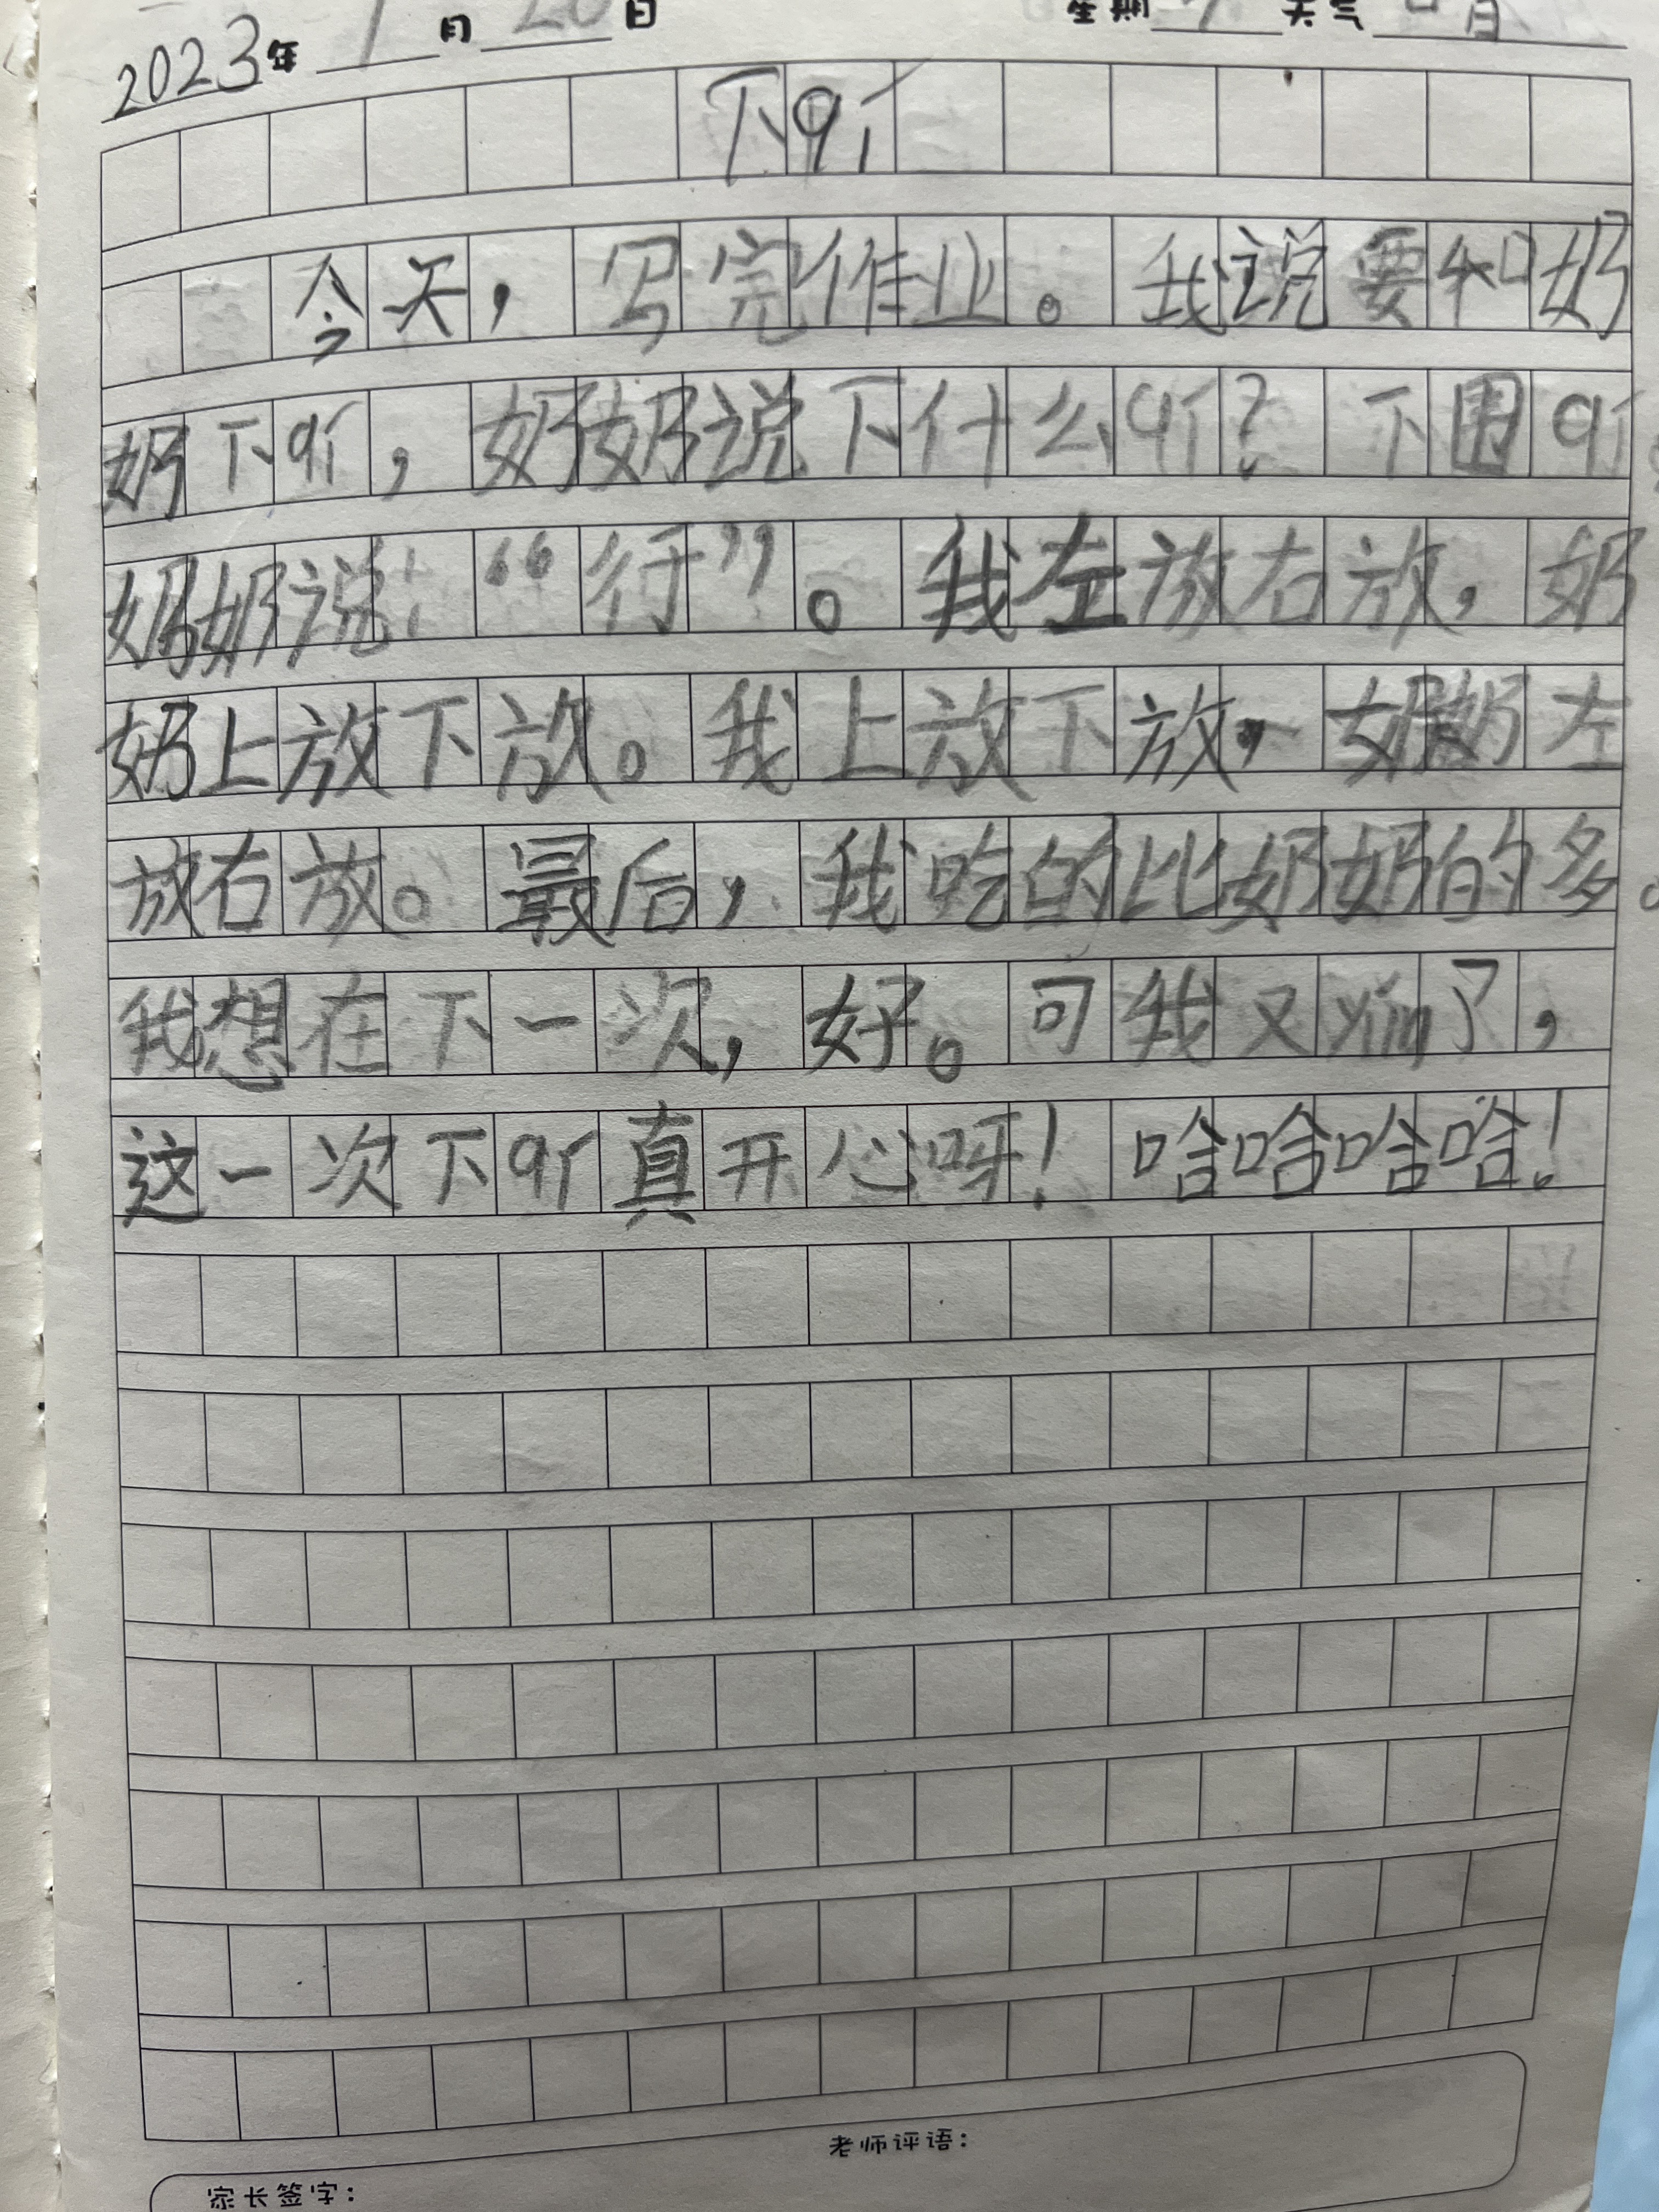 2023年1月20日 星期 天气 晴
下qí
今天，写完作业。我说要和奶
奶下qí，奶奶说下什么qí？下围qí。
奶奶说：“行”。我左放右放，奶
奶上放下放。我上放下放，奶奶左
放右放。最后，我吃的比奶奶的多。
我想在下一次，好。可我又yíng了，
这一次下qí真开心呀！哈哈哈哈！
老师评语：
家长签字：